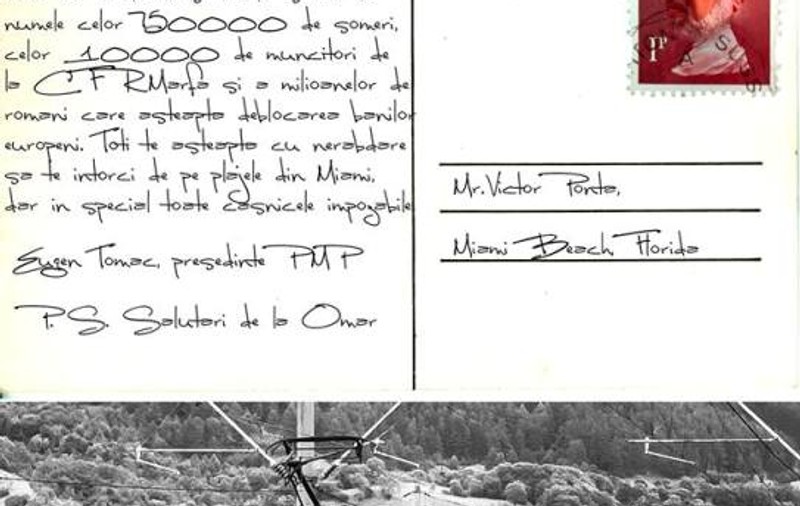 numele celor 750000 de someri,
celor 10000 de muncitori de
la CFRMarfa si a milioanelor de
romani care asteapta deblocarea banilor
europeni. Toti te asteapta cu nerabdare
sa te intorci de pe plajele din Miami,
dar in special toate casnicele impozabile
Eugen Tomac, presedinte PMP
P.S. Salutari de la Omar
1P
Mr.Victor Ponta,
Miami Beach, Florida